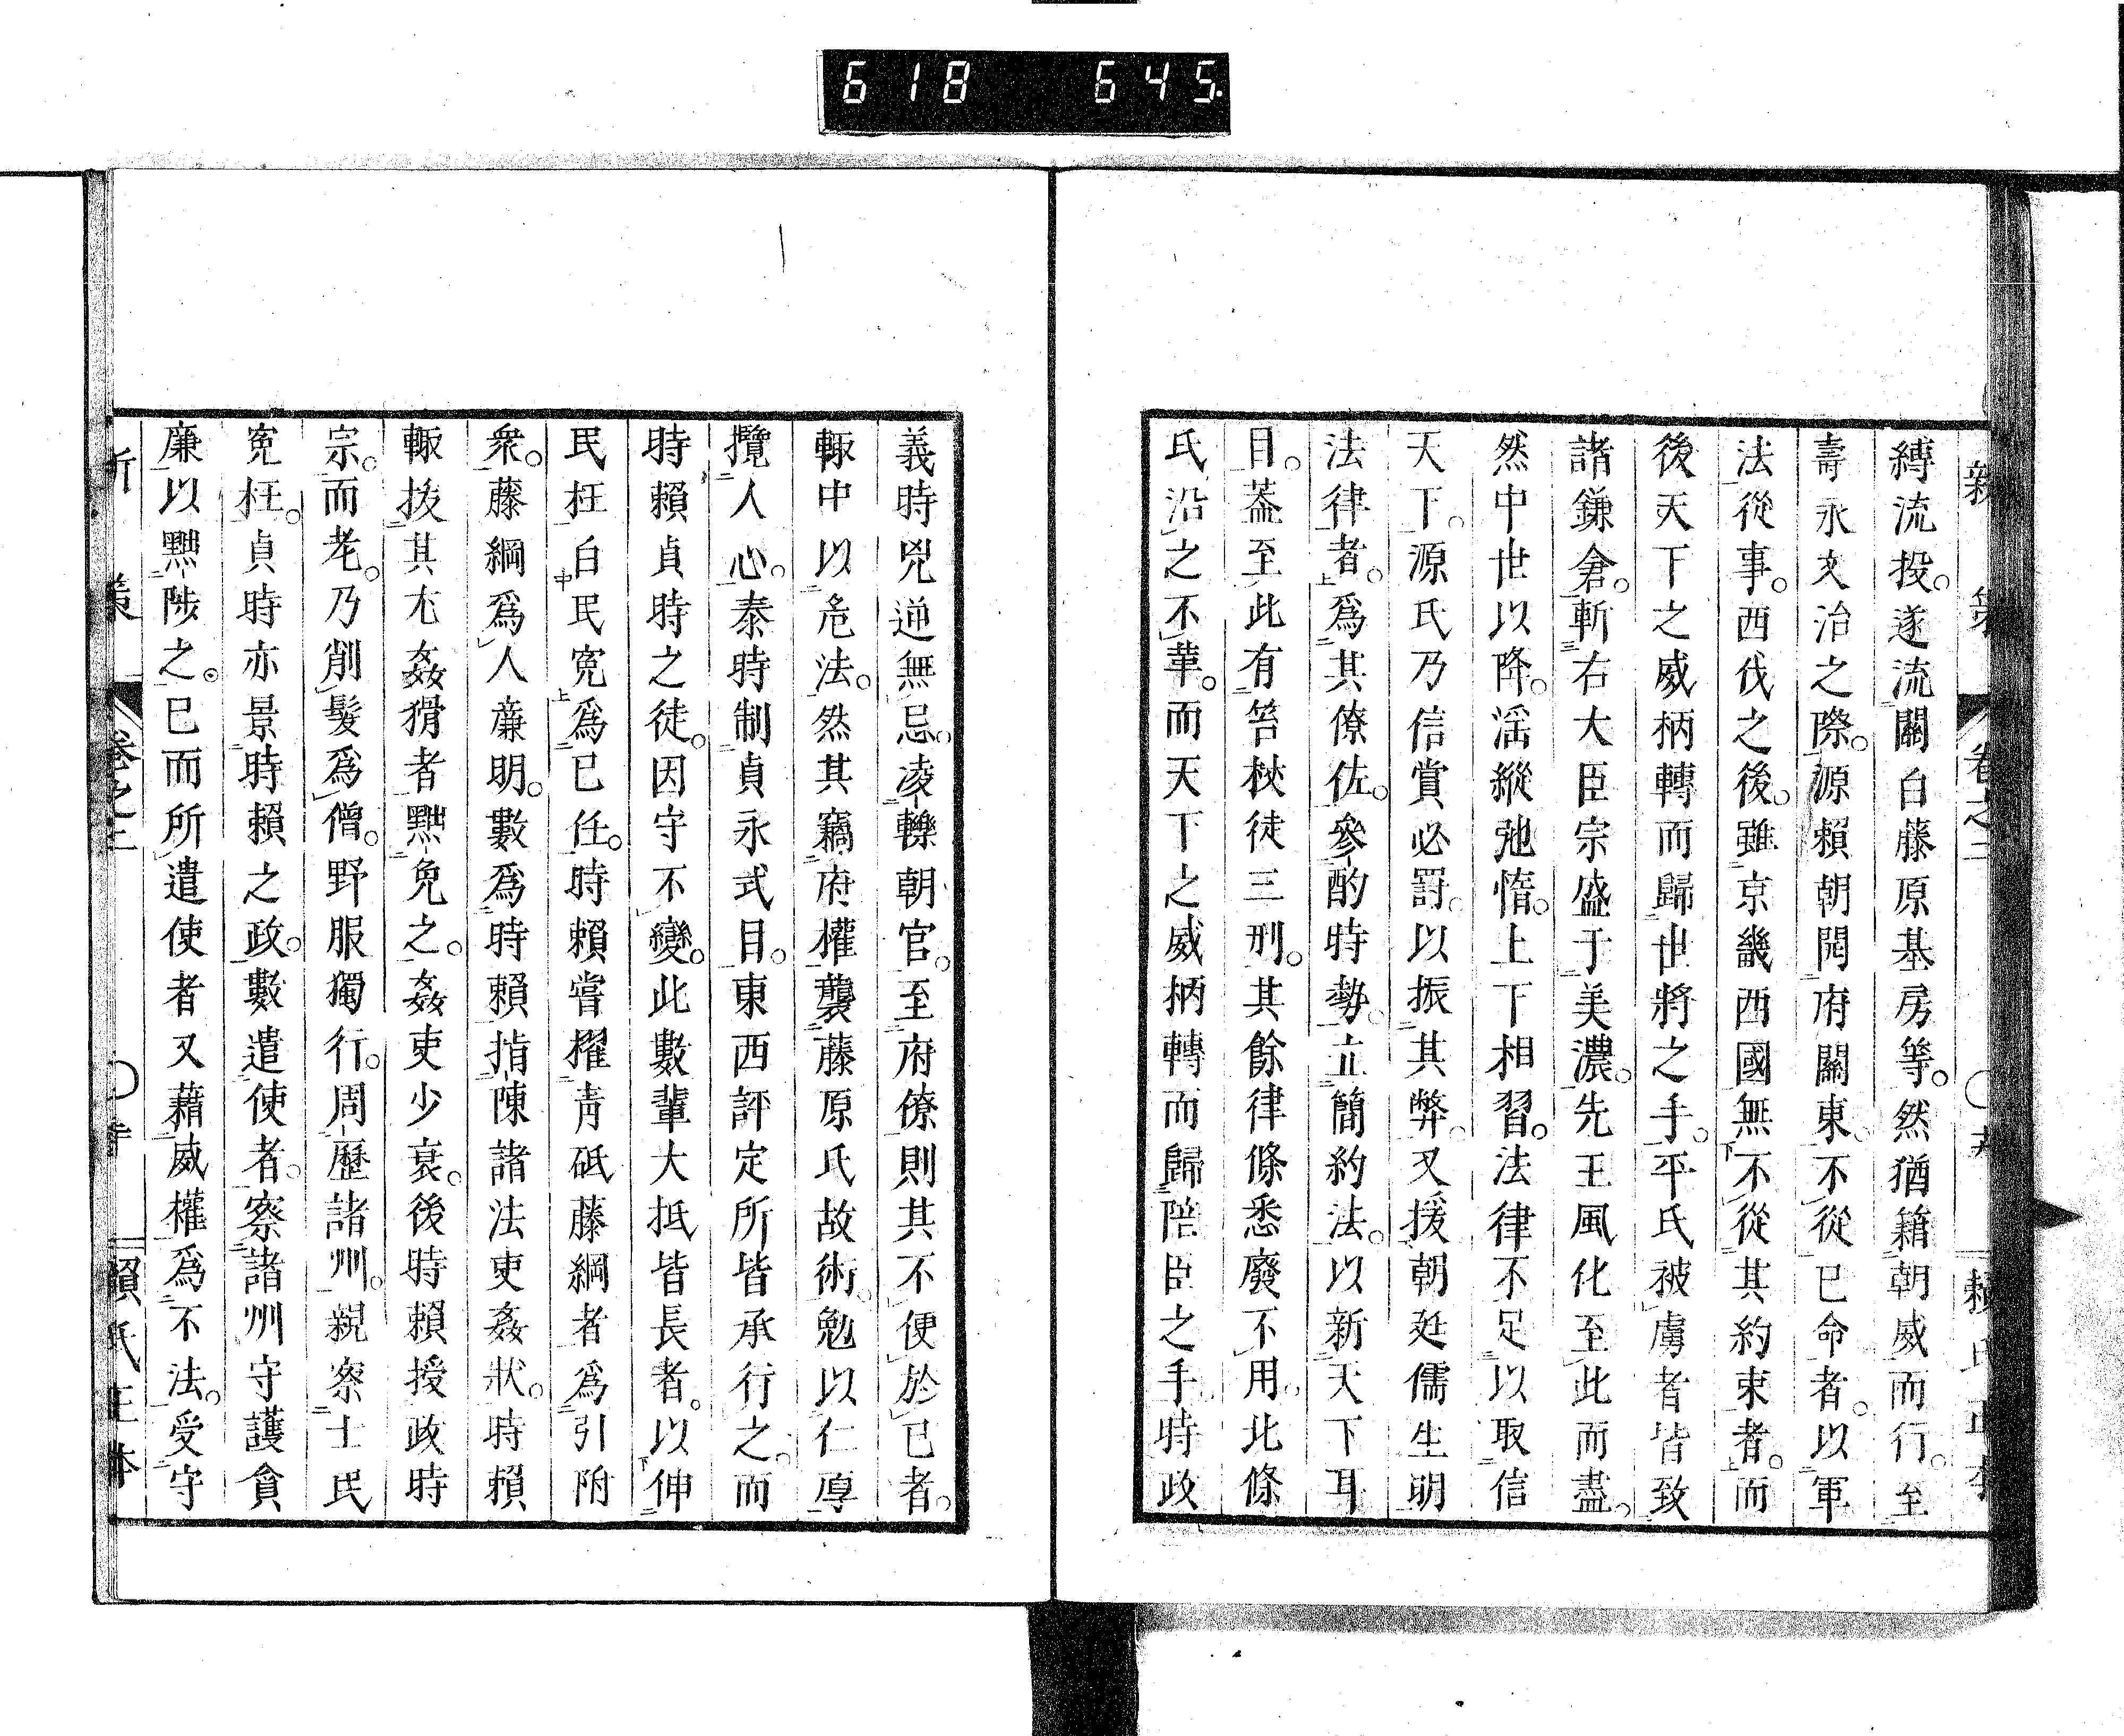 618 645.
縛流投。遂流關白藤原基房等。然猶籍朝威而行。至
壽永文治之際。源賴朝開府關東。不從已命者。以軍
法從事。西伐之後。雖京畿西國無不從其約束者。而
後天下之威柄轉而歸世將之手。平氏被虜者皆致
諸鎌倉。斬右大臣宗盛于美濃。先王風化至此而盡。
然中世以降。滛縱弛惰。上下相習。法律不足以取信
天下。源氏乃信賞必罸。以振其弊。又援朝廷儒生明
法律者。爲其僚佐。參酌時勢。立簡約法。以新天下耳
目。葢至此有笞杖徒三刑。其餘律條悉廢不用。北條
氏沿之不革。而天下之威柄轉而歸陪臣之手。時政
義時兇逆無忌。凌轢朝官。至府僚則其不便於已者。
輙中以危法。然其竊府權襲藤原氏故術。勉以仁厚
攬人心。泰時制貞永式目。東西評定所皆承行之。而
時賴貞時之徒。因守不變。此數輩大抵皆長者。以伸
民枉白民寃爲已任。時賴嘗擢靑砥藤綱者爲引附
衆。藤綱爲人廉明。數爲時賴指陳諸法吏姦狀。時賴
輙拔其尤姦猾者黜免之。姦吏少衰。後時賴授政時
宗。而老。乃削髮爲僧。野服獨行。周歷諸州。親察士民
寃枉。貞時亦景時賴之政。數遣使者。察諸州守護貪
廉以黜陟之。已而所遣使者又藉威權爲不法。受守